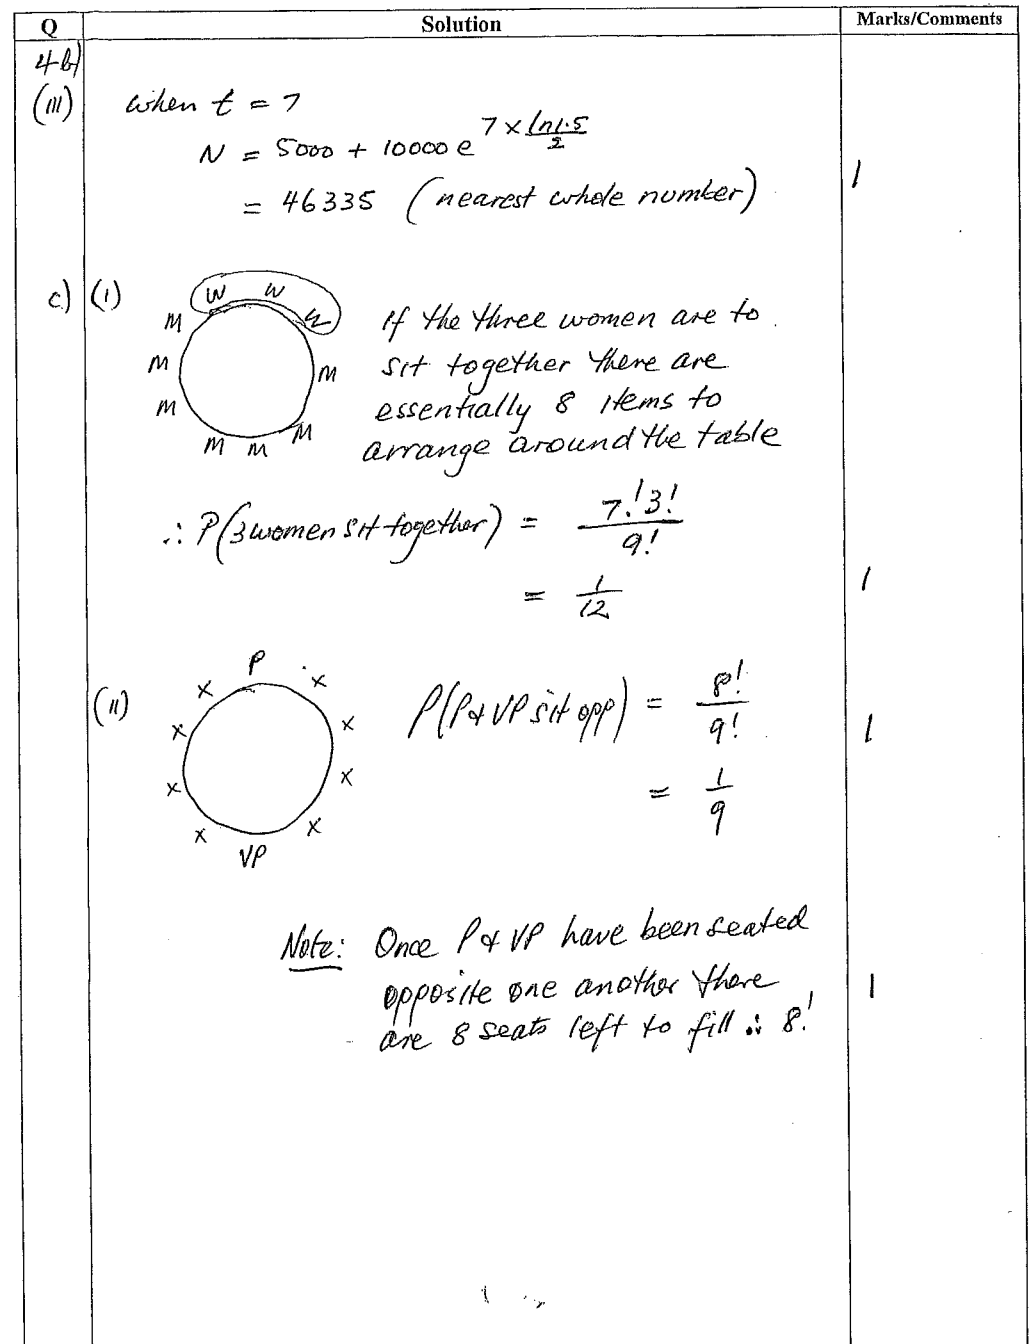 Q Solution Marks/Comments
4b)
(III) when t = 7
N = 5000 + 10000 e^(7 × ln1.5/2)
= 46335 (nearest whole number) 1
c) (I)
W W W
M M
M
M M
M M
If the three women are to
sit together there are
essentially 8 items to
arrange around the table
∴ P(3 women sit together) = 7!3!/9!
= 1/12 1
(II)
P
x x
x x
x x
x x
VP
P(P & VP sit opp) = 8!/9! 1
= 1/9
Note: Once P & VP have been seated
opposite one another there 1
are 8 seats left to fill ∴ 8!